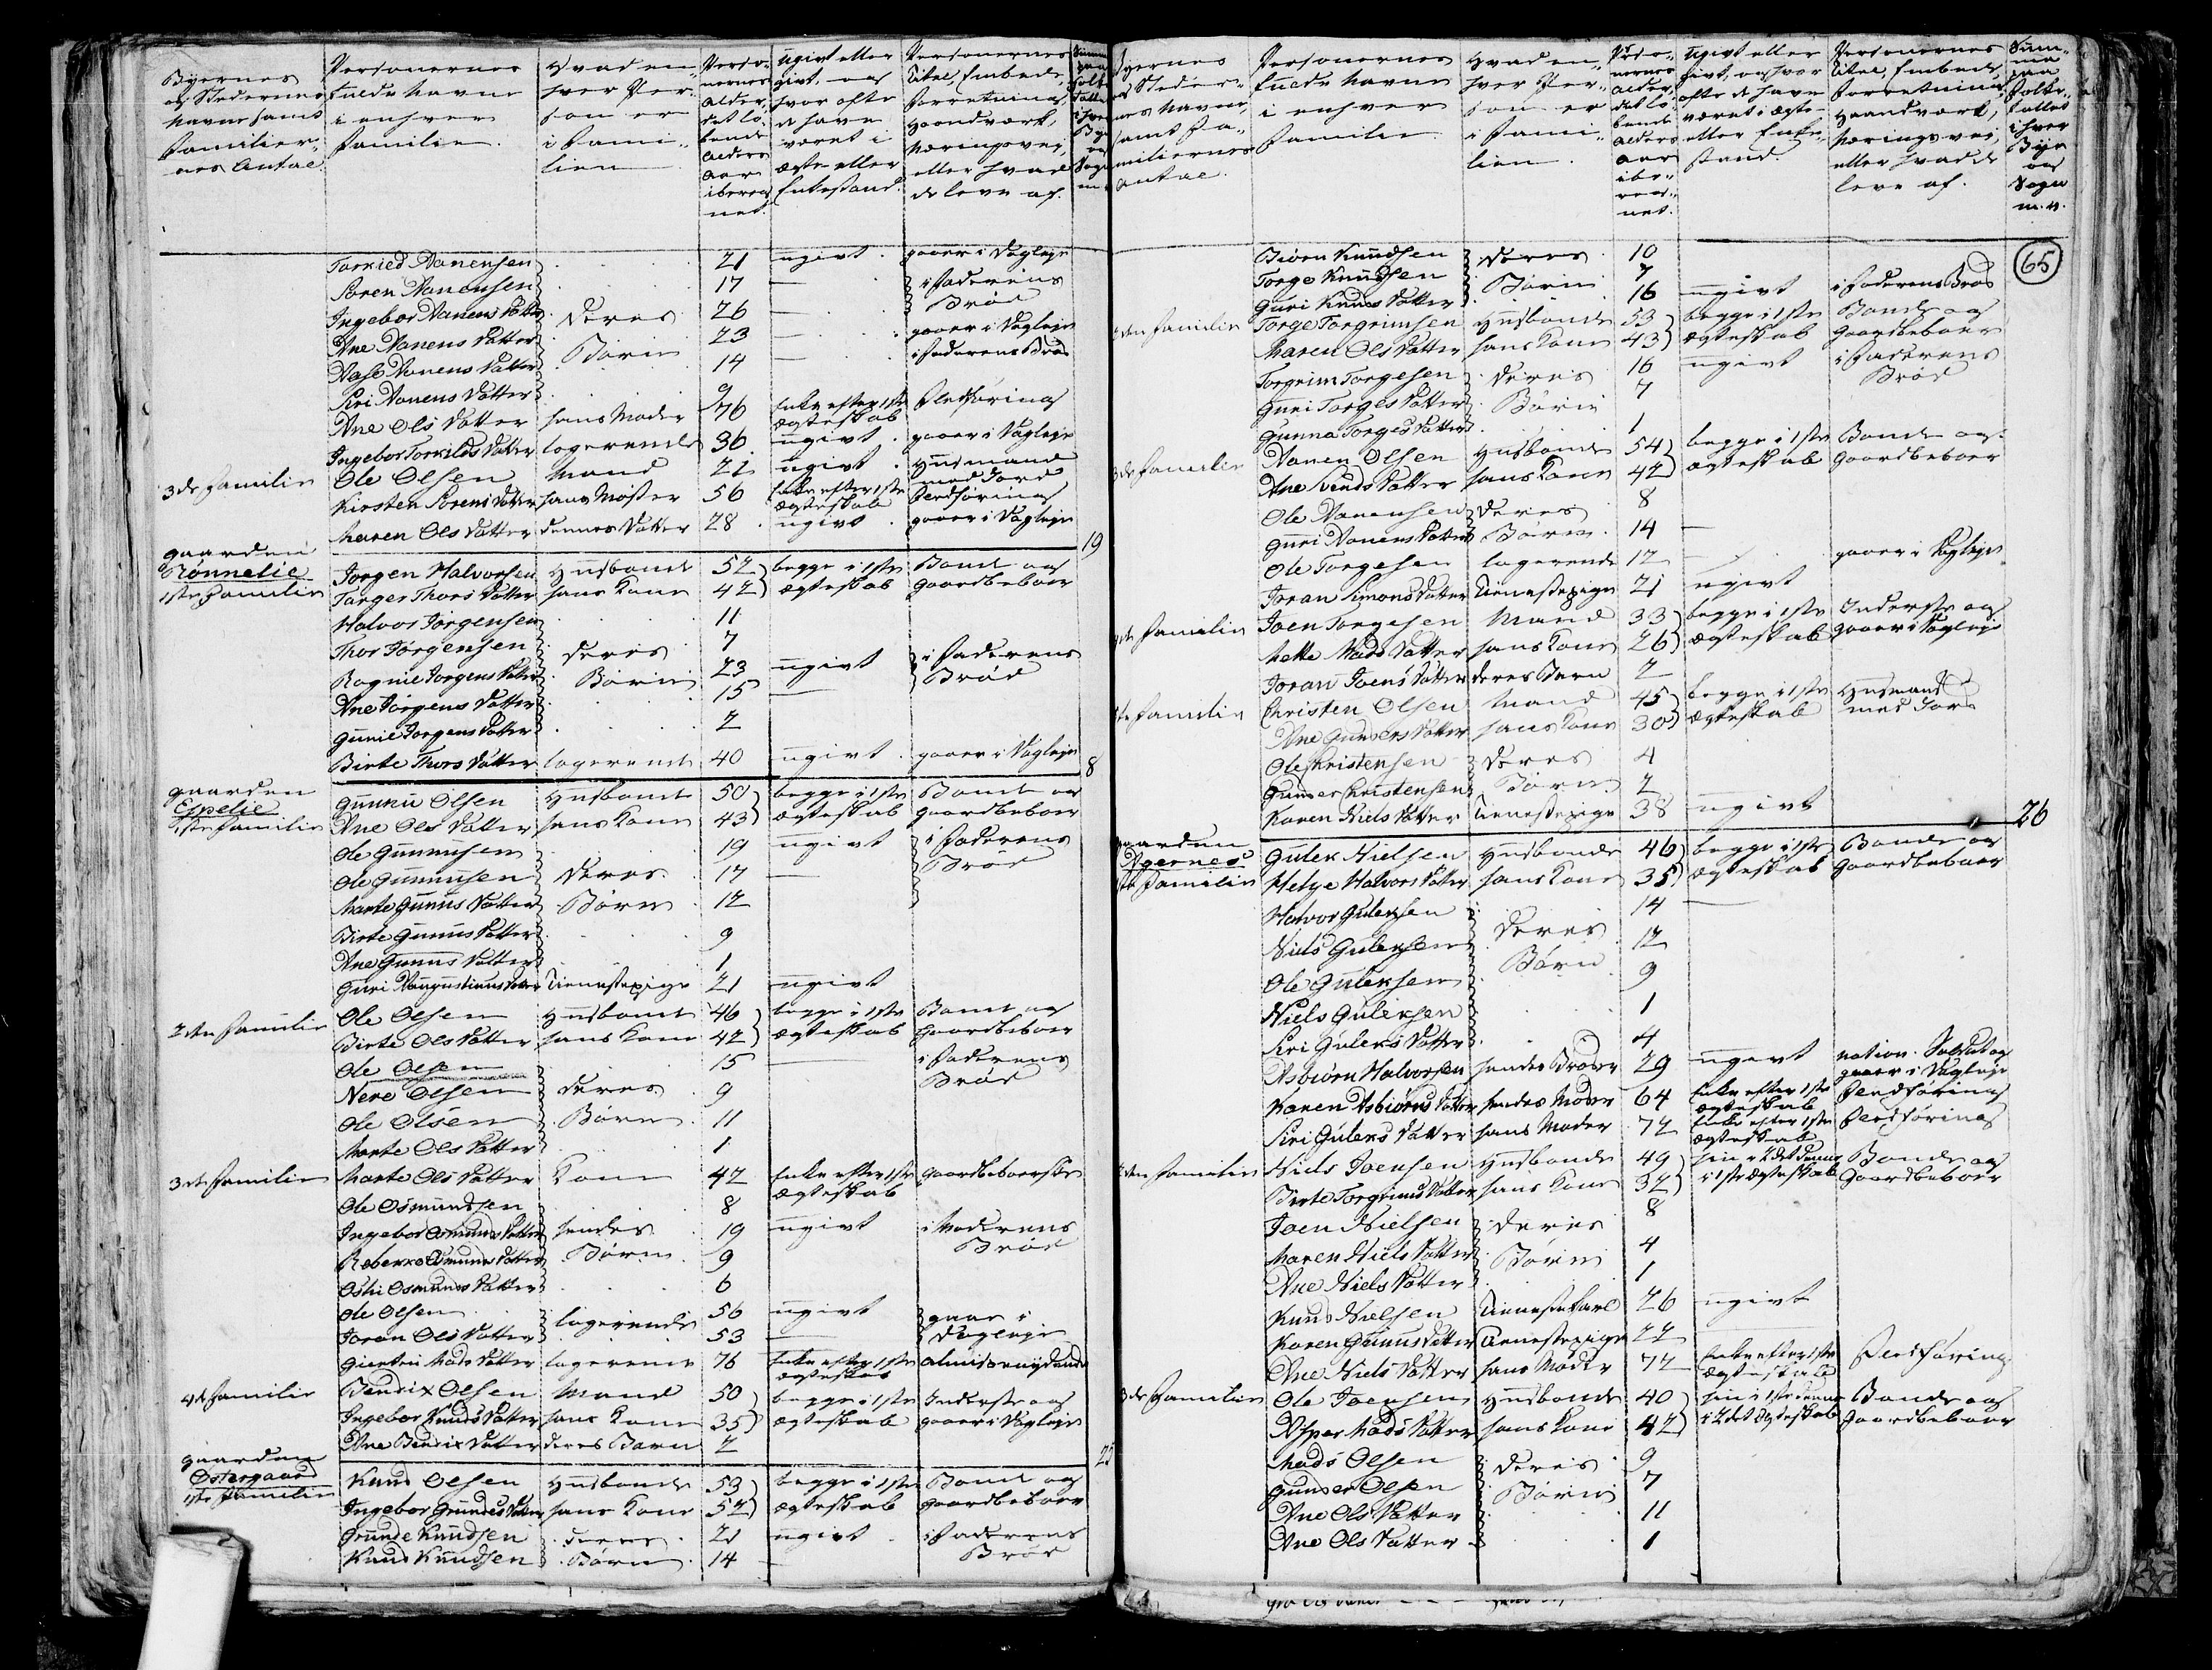 Byernes og Stedernes Navne samt Familiernes Antal.
Personernes fulde Navne i enhver Familie.
Hvad enhver Person er i Familien
Personernes Alder, det løbende Alders Aar iberegnet.
Ugivt eller givt, og hvor ofte de have været i Ægte eller Enkestand.
Personernes Titel, Embede, Forretning, Haandværk, Næringsvei, eller hvad de leve af.
Tarkied Aanensen 21 ugivt gaaer i Dagleje
Søren Aanensen 17 — i Faderens Brød
Ingebor Aanens Datter Deres 26 —
Ane Aanens Datter Børn 23 — gaaer i Dagleje
Aase Aanens Datter 14 — i Faderens Brød
Siri Aanens Datter 9
Ane Ols Datter hans Moder 76 Enke efter 1ste Ægteskab Fledføring
Ingebor Torkilds Datter logerende 36 ugivt gaaer i Dagleje
3de Familie Ole Olsen Mand 21 ugivt Husmand med Jord
Kirsten Sørens Datter hans Moder 56 Enke efter 1ste Ægteskab Fledføring
Maren Ols Datter dennes Datter 28 ugivt gaaer i Dagleje
19
Gaarden Rønnelie
1ste Familie Jørgen Halvorsen Husbonde 52 begge i 1ste Ægteskab Bonde og Gaardbeboer
Targer Thors Datter hans Kone 42
Halvor Jørgensen 11
Thor Jørgensen Deres 7
Ragnie Jørgens Datter Børn 23 ugivt i Faderens Brød
Ane Jørgens Datter 15 —
Gunie Jørgens Datter 2
Birte Thors Datter logerende 40 ugivt gaaer i Dagleje
8
Gaarden Espelie
1ste Familie Gunnu Olsen Husbonde 50 begge i 1ste Ægteskab Bonde og Gaardbeboer
Ane Ols Datter hans Kone 43
Ole Gunnusen 19 ugivt i Faderens Brød
Ole Gunnusen Deres 17 —
Marte Gunus Datter Børn 12
Birte Gunnus Datter 9
Ane Gunnus Datter 1
Guri Aaugustinus Datter Tienestepige 21 ugivt
2den Familie Ole Olsen Husbonde 46 begge i 1ste Ægteskab Bonde og Gaardbeboer
Birte Ols Datter hans Kone 42
Ole Olsen 15 — i Faderens Brød
Nere Olsen Deres 9
Ole Olsen Børn 11
Marte Ols Datter 1
3de Familie Marte Ols Datter Kone 42 Enke efter 1ste Ægteskab Gaardbeboerske
Ole Osmundsen 8
Ingebor Osmunds Datter hendes 19 ugivt i Moderens Brød
Rebekka Osmunds Datter Børn 9
Osti Osmunds Datter 6
Ole Olsen logerende 56 ugivt gaaer i Dagleje
Joran Ols Datter 53 —
Mads Datter logerende 76 Enke efter 1ste Ægteskab Almissenydende
4de Familie Bendix Olsen Mand 50 begge i 1ste Ægteskab Inderste og gaaer i Dagleje
Ingebor Knuds Datter hans Kone 35
Ane Bendix Datter deres Barn 2
25
Gaarden Østergaard
1ste Familie Knud Olsen Husbonde 53 begge i 1ste Ægteskab Bonde og Gaardbeboer
Ingebor Grundes Datter hans Kone 52
Grunde Knudsen deres 21 ugivt i Faderens Brød
Knud Knudsen Børn 14 —
Byernes og Stedernes Navne, samt Familiernes Antal.
Personernes fulde Navne i enhver Familie
Hvad enhver Person er i Familien.
Personernes Alder, det løbende Alders Aar iberegnet.
Ugivt eller givt, og hvor ofte de have været i Ægte eller Enkestand.
Personernes Titel, Embede, Forretning, Haandværk, Næringsvei, eller hvad de leve af.
Summa paa Folketallet i hver Bye og Sogn m.v.
65
Biørn Knudsen deres 10
Torge Knudsen Børn 7
Guri Knuds Datter 16 ugivt i Faderens Brød
2den Familie Torge Torgrimsen Husbonde 53 begge i 1ste Ægteskab Bonde og Gaardbeboer
Maren Ols Datter hans Kone 43
Torgrim Torgesen deres 16 ugivt i Faderens Brød
Guri Torges Datter Børn 7
Gunna Torges Datter 1
3de Familie Aanen Olsen Husbonde 54 begge i 1ste Ægteskab Bonde og Gaardbeboer
Ane Svends Datter hans Kone 42
Ole Aanensen deres 8
Guri Aanens Datter Børn 14 —
Ole Torgesen logerende 12 — gaaer i Dagleje
Joran Simons Datter Tienestepige 21 ugivt
4de Familie Joen Torgesen Mand 33 begge i 1ste Ægteskab Inderste og gaaer i Dagleje
Mette Mads Datter hans Kone 26
Joran Joens Datter deres Barn 2
5te Familie Christen Olsen Mand 45 begge i 1ste Ægteskab Husmand med Jord
Ane Gunders Datter hans Kone 30
Ole Christensen deres 4
Gunder Christensen Børn 2
Karen Niels Datter Tienestepige 38 ugivt
26
Gaarden Agernes
1ste Familie Gulek Nielsen Husbonde 46 begge i 1ste Ægteskab Bonde og Gaardbeboer
Helge Halvors Datter hans Kone 35
Halvor Guleksen 14 —
Niels Guleksen deres 12
Ole Guleksen Børn 9
Niels Guleksen 1
Siri Guleks Datter 4
Asbiørn Halvorsen hendes Broder 29 ugivt nation. Soldat og gaaer i Dagleje
Karen Asbiørns Datter hendes Moder 64 Enke efter 1ste Ægteskab Fledføring
Siri Guleks Datter hans Moder 72 Enke efter 1ste Ægteskab Fledføring
2den Familie Niels Joensen Husbonde 49 hun i 2det denne i 1ste Ægteskab Bonde og Gaardbeboer
Birte Torgrims Datter hans Kone 32
Joen Nielsen deres 8
Maren Niels Datter Børn 4
Ane Niels Datter 1
Knud Nielsen Tienestekarl 26 ugivt
Karen Gunnus Datter Tienestepige 22
Ane Niels Datter hans Moder 72 Enke efter 1ste Ægteskab Fledføring
3de Familie Ole Joensen Husbonde 40 hun i 1ste denne i 2det Ægteskab Bonde og Gaardbeboer
Asper Mads Datter hans Kone 42
Mads Olsen deres 9
Gunder Olsen Børn 7
Ane Ols Datter 11
Ane Ols Datter 1